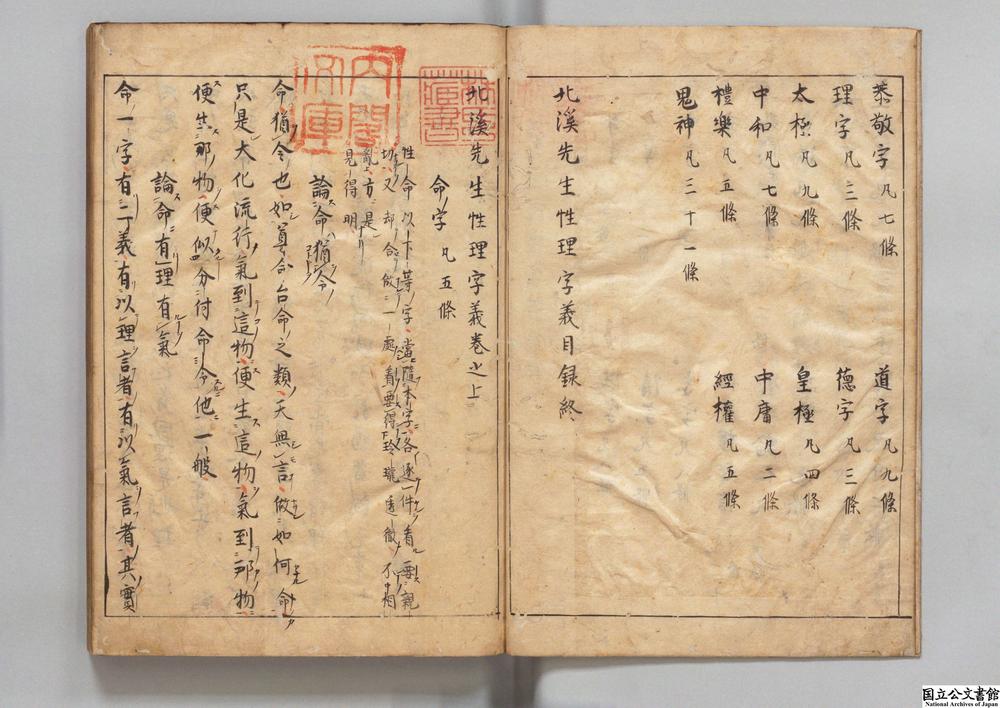 恭敬字 凡七條 道字 凡九條
理字 凡三條 德字 凡三條
太極 凡九條 皇極 凡四條
中和 凡七條 中庸 凡二條
禮樂 凡五條 經權 凡五條
鬼神 凡三十一條
北溪先生性理字義目録終
北溪先生性理字義卷之上
命字 凡五條
性命以下等字當隨本字各逐一件看要親
切又却合做一處看要得玲瓏透徹不相
亂方是
見得明
論命猶令
命猶令也如尊命台命之類天無言做如何命
只是大化流行氣到這物便生這物氣到那物
便生那物便似分付命令他一般
論命有理有氣
命一字有二義有以理言者有以氣言者其實
內閣文庫
国立公文書館
National Archives of Japan